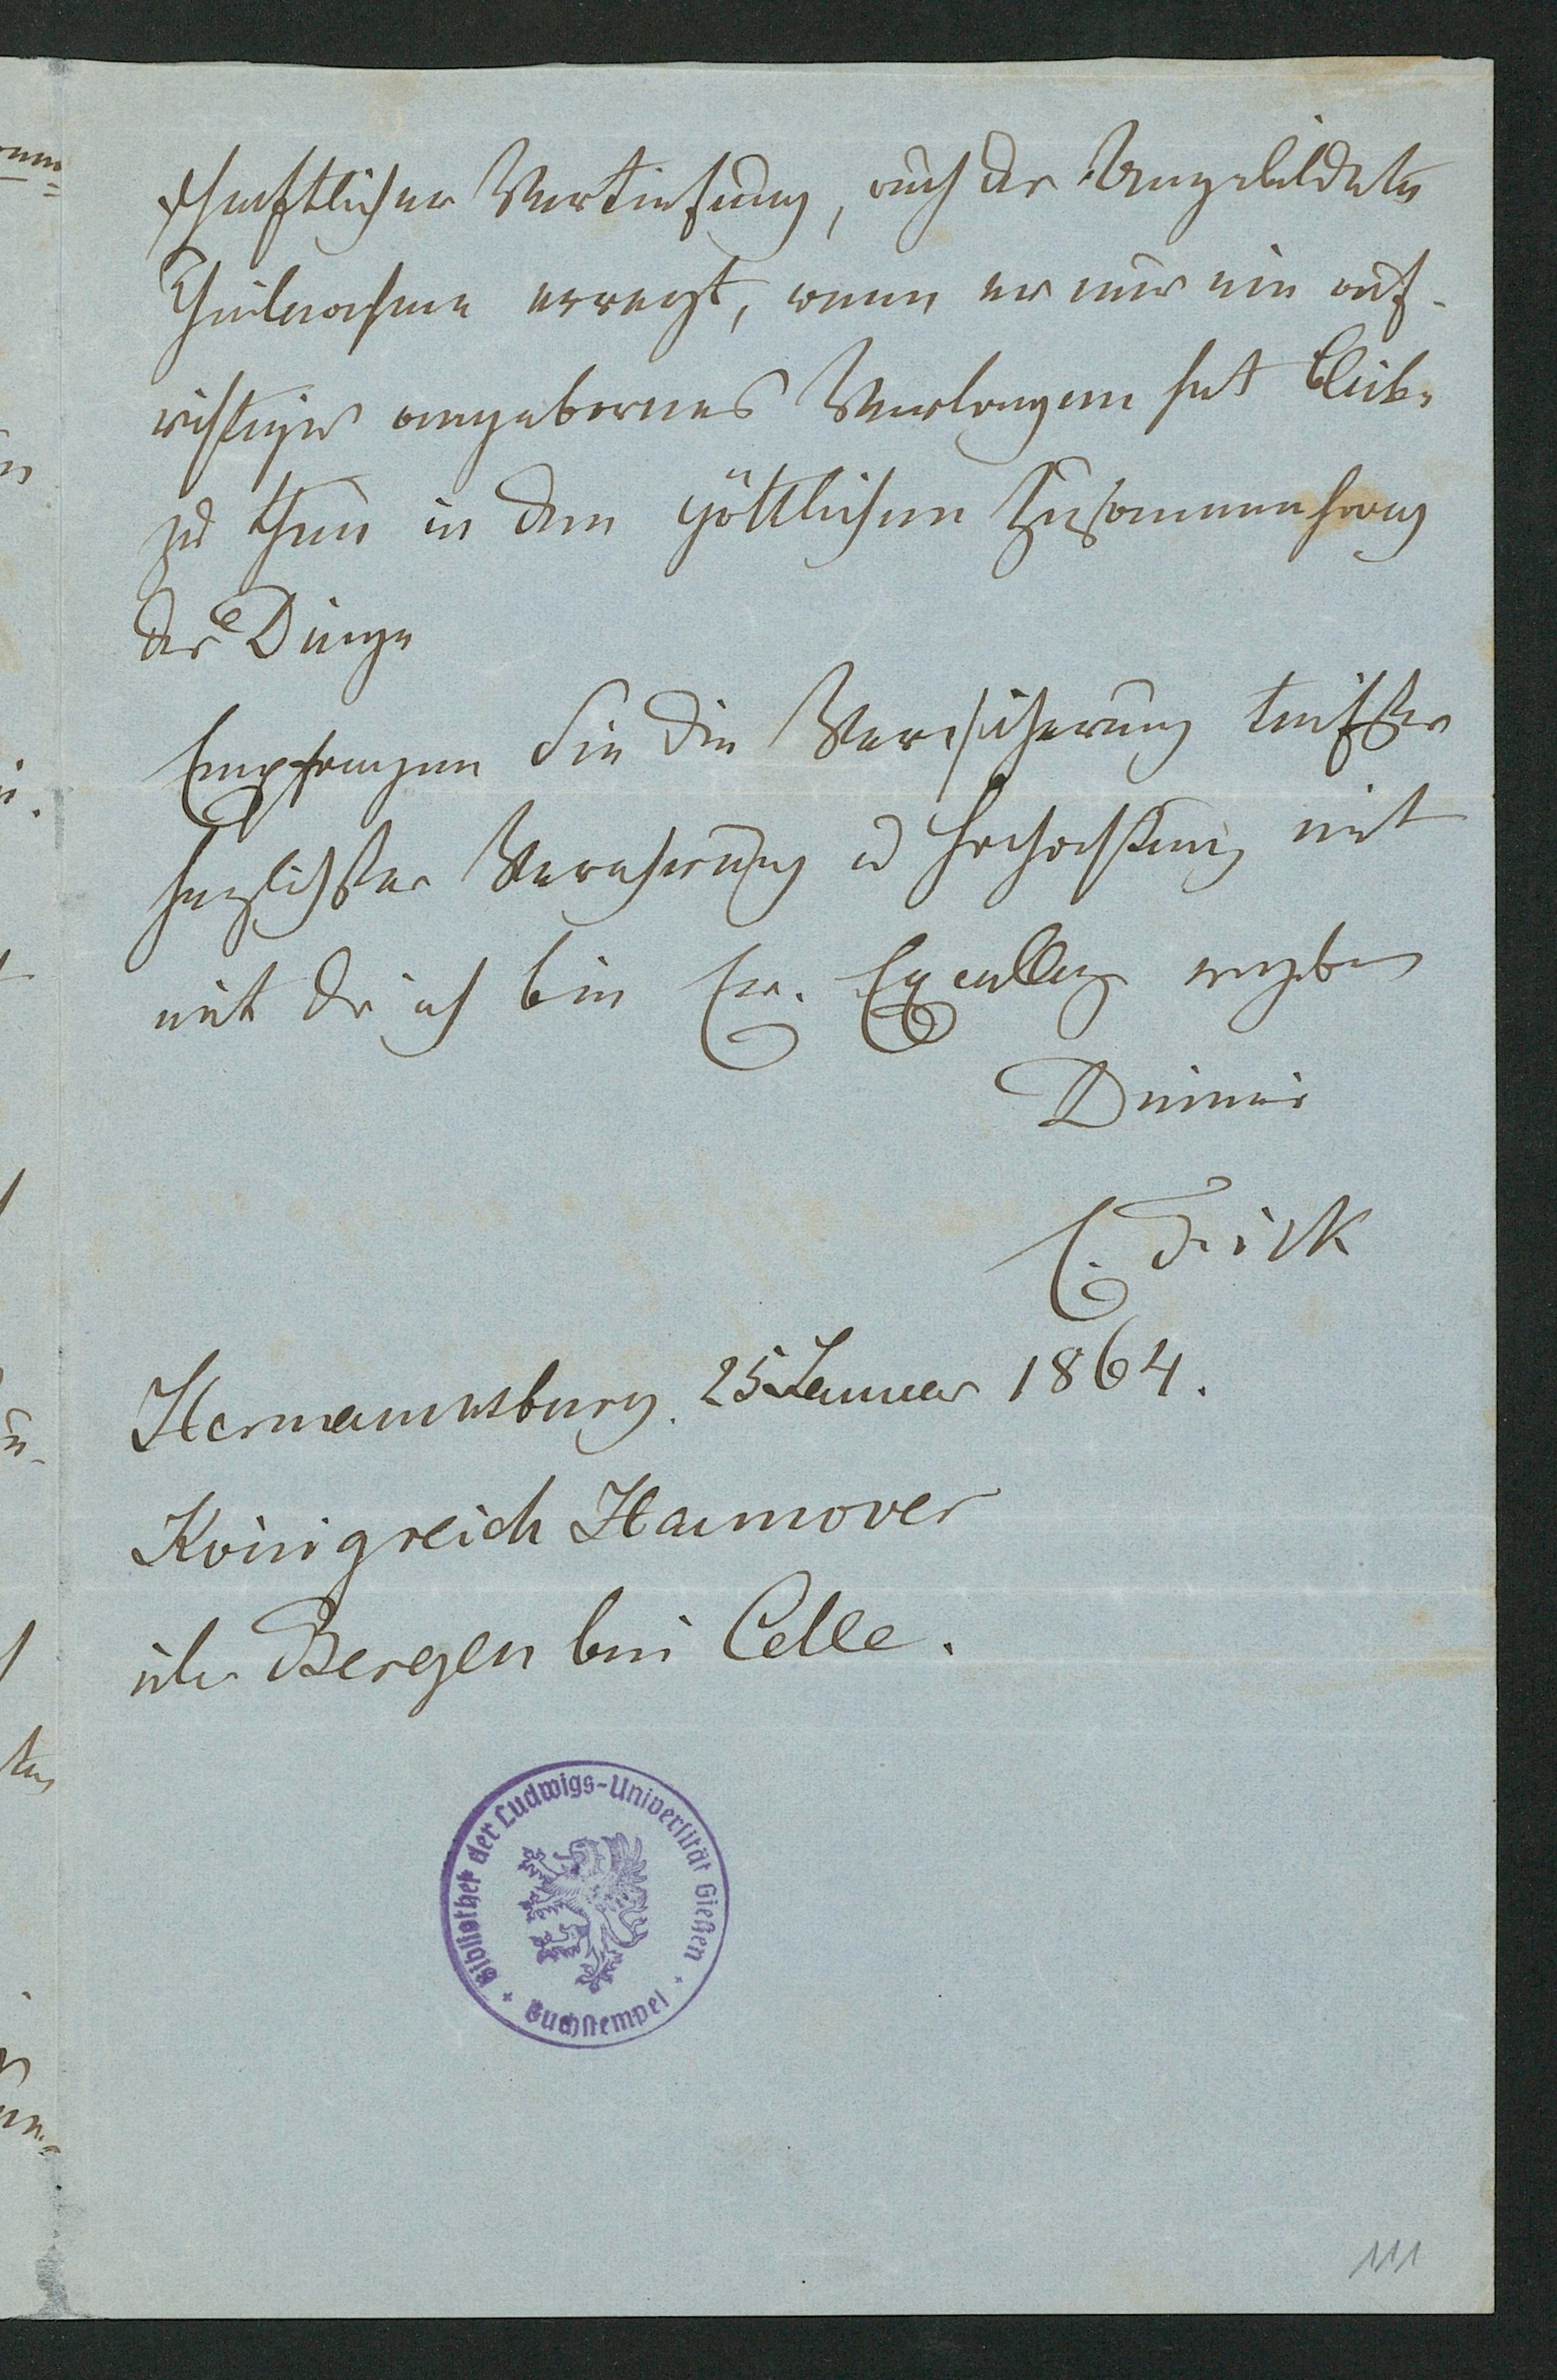 schaftlicher Vertiefung, auch der Ungebildete
Theilnahme erregt, wenn er nur ein auf-
richtiges angebornes Verlangen hat Blicke
zu thun in den göttlichen Zusammenhang
der Dinge
Empfangen Sie die Versicherung tiefster
herzlichster Verehrung u Hochachtung mit
mit der ich bin Ew. Excellenz ergebener
Diener
C. Frick
Hermannsburg. 25 Januar 1864.
Königreich Hannover
über Bergen bei Celle.
Bibliothek der Ludwigs-Universität Gießen
Buchstempel
111